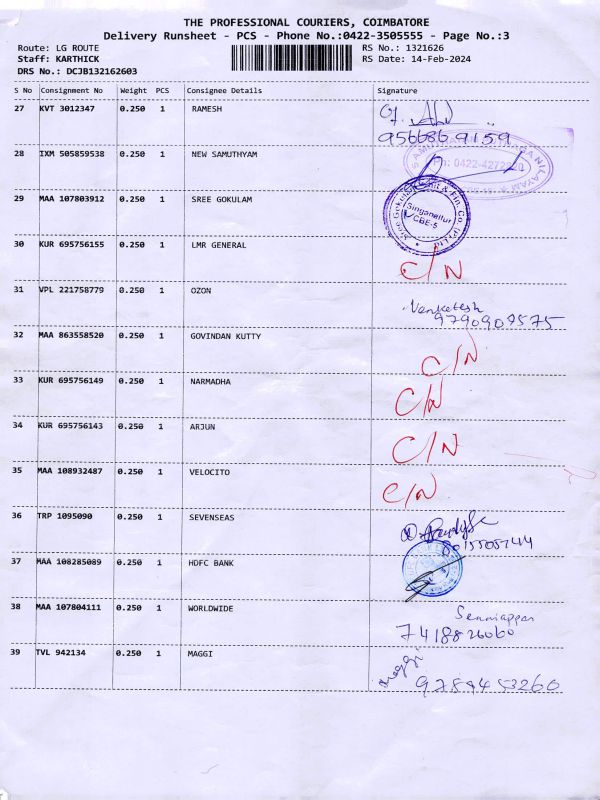 THE PROFESSIONAL COURIERS, COIMBATORE
Delivery Runsheet - PCS - Phone No.:0422-3505555 - Page No.:3
Route: LG ROUTE RS No.: 1321626
Staff: KARTHICK RS Date: 14-Feb-2024
DRS No.: DCJB132162603
S No Consignment No Weight PCS Consignee Details Signature
27 KVT 3012347 0.250 1 RAMESH
9566869159
28 IXM 505859538 0.250 1 NEW SAMUTHYAM
Ph: 0422-4272
29 MAA 107803912 0.250 1 SREE GOKULAM
Singanallur
CBE-5
30 KUR 695756155 0.250 1 LMR GENERAL
C/N
31 VPL 221758779 0.250 1 OZON
Venketesh
9790909575
32 MAA 863558520 0.250 1 GOVINDAN KUTTY
C/N
33 KUR 695756149 0.250 1 NARMADHA
C/N
34 KUR 695756143 0.250 1 ARJUN
C/N
35 MAA 108932487 0.250 1 VELOCITO
C/N
36 TRP 1095090 0.250 1 SEVENSEAS
37 MAA 108285089 0.250 1 HDFC BANK
38 MAA 107804111 0.250 1 WORLDWIDE
Senniappan
7418826060
39 TVL 942134 0.250 1 MAGGI
Maggi
9789453260